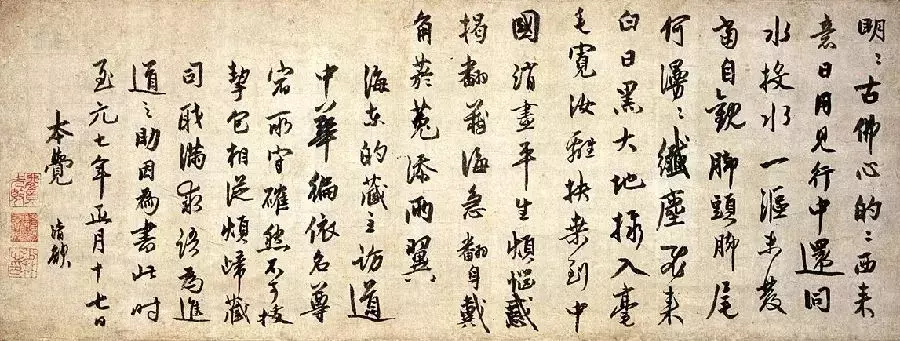 明〻古佛心的〻西来
意日用見行中還同
水投水一漚未發
當自觀脚頭脚尾
何漫〻纖塵不来
白日黑大地攃入毫
毛寛汝離扶桒到中
國消盡平生煩惱惑
掲翻蒼海急翻身戴
角菸菟添兩翼
海东的藏主訪道
中華徧依名尊
宿所守確然不可拔
挈包相從煩歸藏
司職滿求語為進
道〻助因為書此时
至元七年正月十七日
本覺 清欲